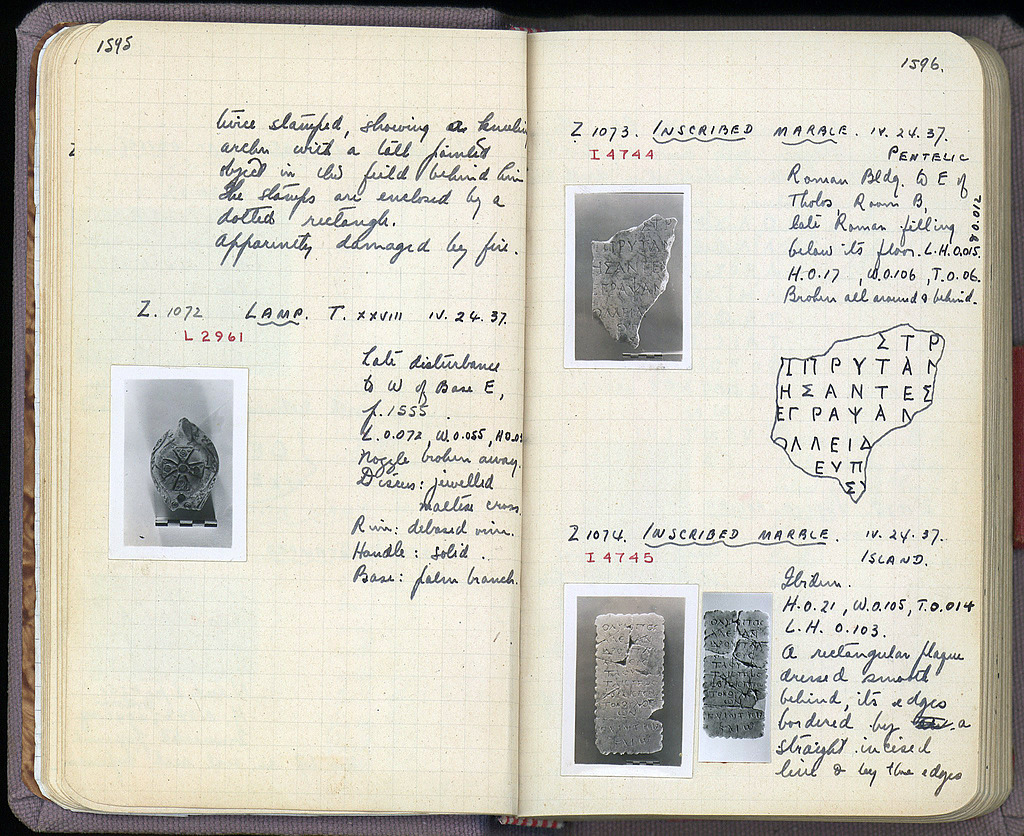 1595
twice stamped, showing a kneeling
archer with a tall pointed
object in the field behind him
The stamps are enclosed by a
dotted rectangle.
Apparently damaged by fire.
Z. 1072 LAMP. T. XXVIII IV. 24. 37.
L 2961
Late disturbance
to W of Base E,
p. 1555.
L. 0.072, W. 0.055, H 0.03
Nozzle broken away.
Discus: jewelled
maltese cross.
Rim: debased vine.
Handle: solid.
Base: palm branch.
1596.
Z 1073. INSCRIBED MARBLE. IV. 24. 37.
I 4744
PENTELIC
Roman Bldg. to E of
Tholos, Room B,
late Roman filling
below its floor. L.H. 0.015.
& 0.012
H. 0.17, W. 0.106, T. 0.06.
Broken all around & behind.
ΣΤΡ
ΙΠΡΥΤΑΝ
ΗΣΑΝΤΕΣ
ΕΓΡΑΨΑΝ
ΟΛΛΕΙΔ
ΕΥΠ
Σ
Z 1074. INSCRIBED MARBLE. IV. 24. 37.
I 4745
ISLAND.
Ibidem.
H. 0.21, W. 0.105, T. 0.014
L.H. 0.103.
A rectangular plaque
dressed smooth
behind, its edges
bordered by a
straight incised
line & by the edges